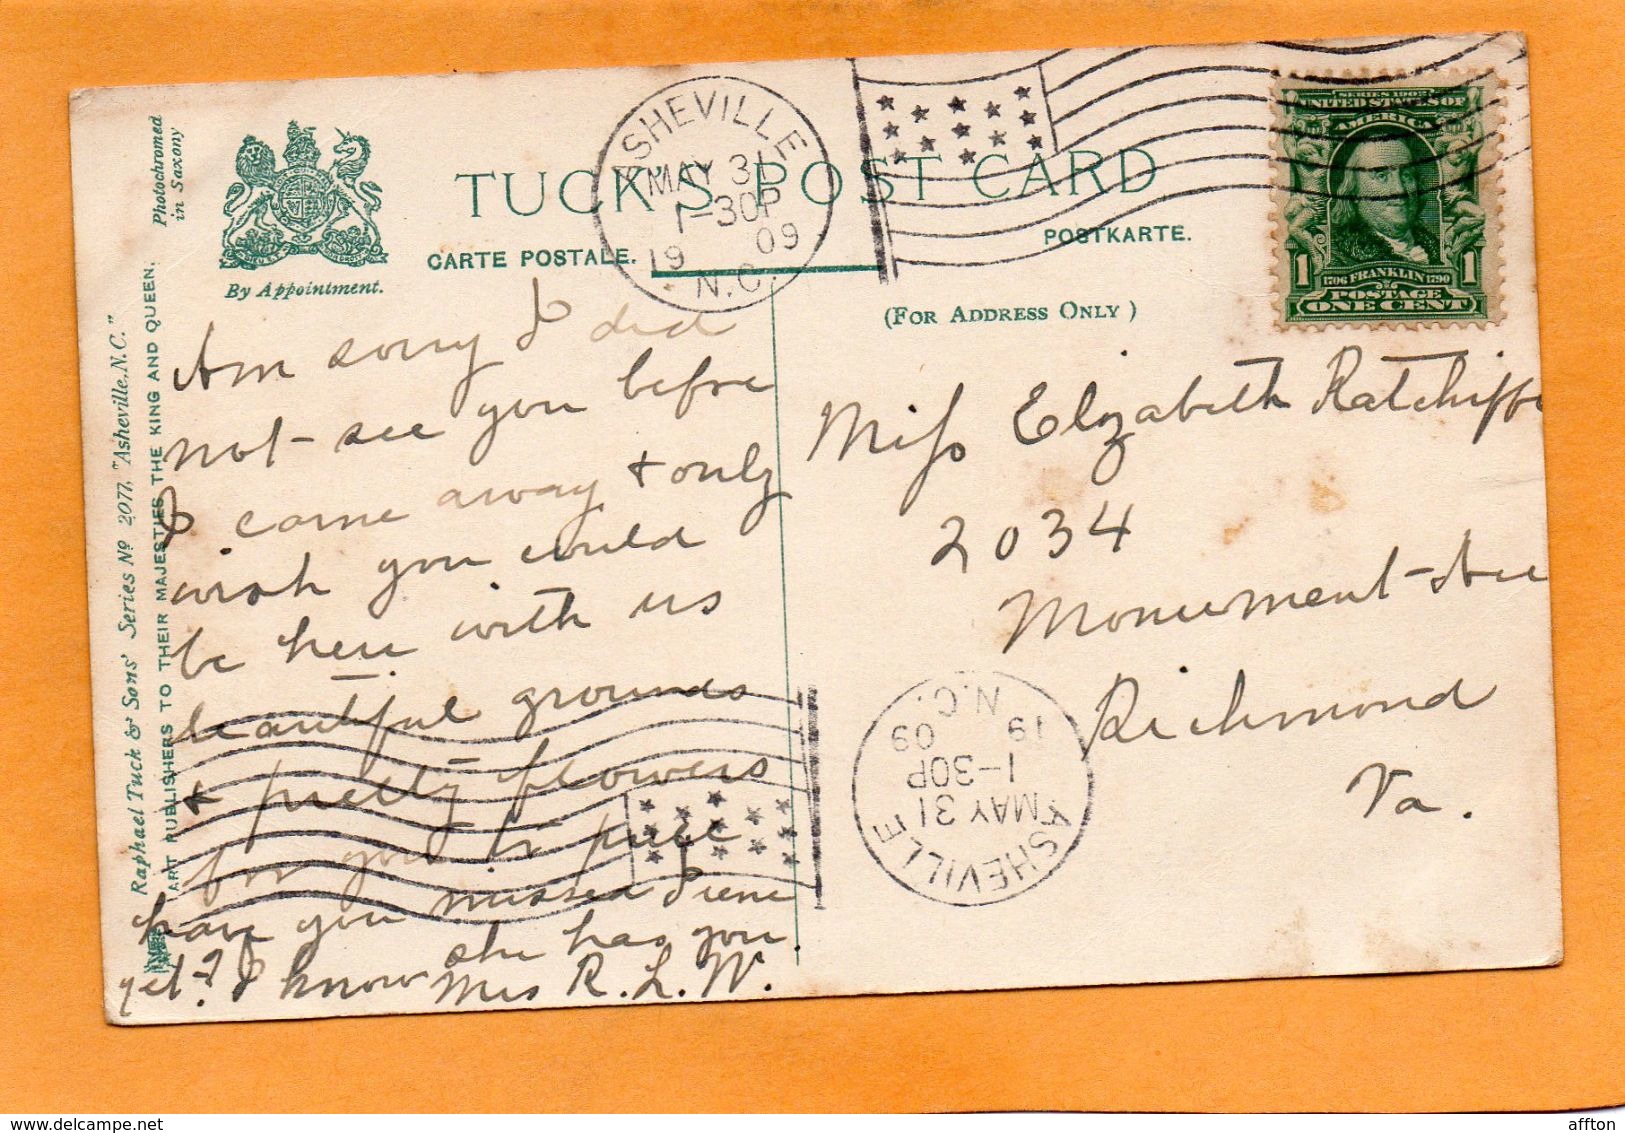 Photochromed
in Saxony
By Appointment.
TUCK'S POST CARD
CARTE POSTALE.
POSTKARTE.
(FOR ADDRESS ONLY)
ASHEVILLE
MAY 31
1-30P
19 09
N.C.
SERIES 1902
UNITED STATES OF
AMERICA
1 1
1706 FRANKLIN 1790
POSTAGE
ONE CENT
Raphael Tuck & Sons' Series No 2077, "Asheville, N.C."
ART PUBLISHERS TO THEIR MAJESTIES THE KING AND QUEEN.
Am sorry I did
not see you before
I came away + only
wish you could
be here with us
beautiful grounds
+ pretty flowers
for you to
have you missed Irene
yet? I know she has you
Mrs R. L. W.
Miss Elizabeth Ratchiffe
2034
Monument Ave
Richmond
Va.
ASHEVILLE
MAY 31
1-30P
19 09
N.C.
delcampe.net
affton